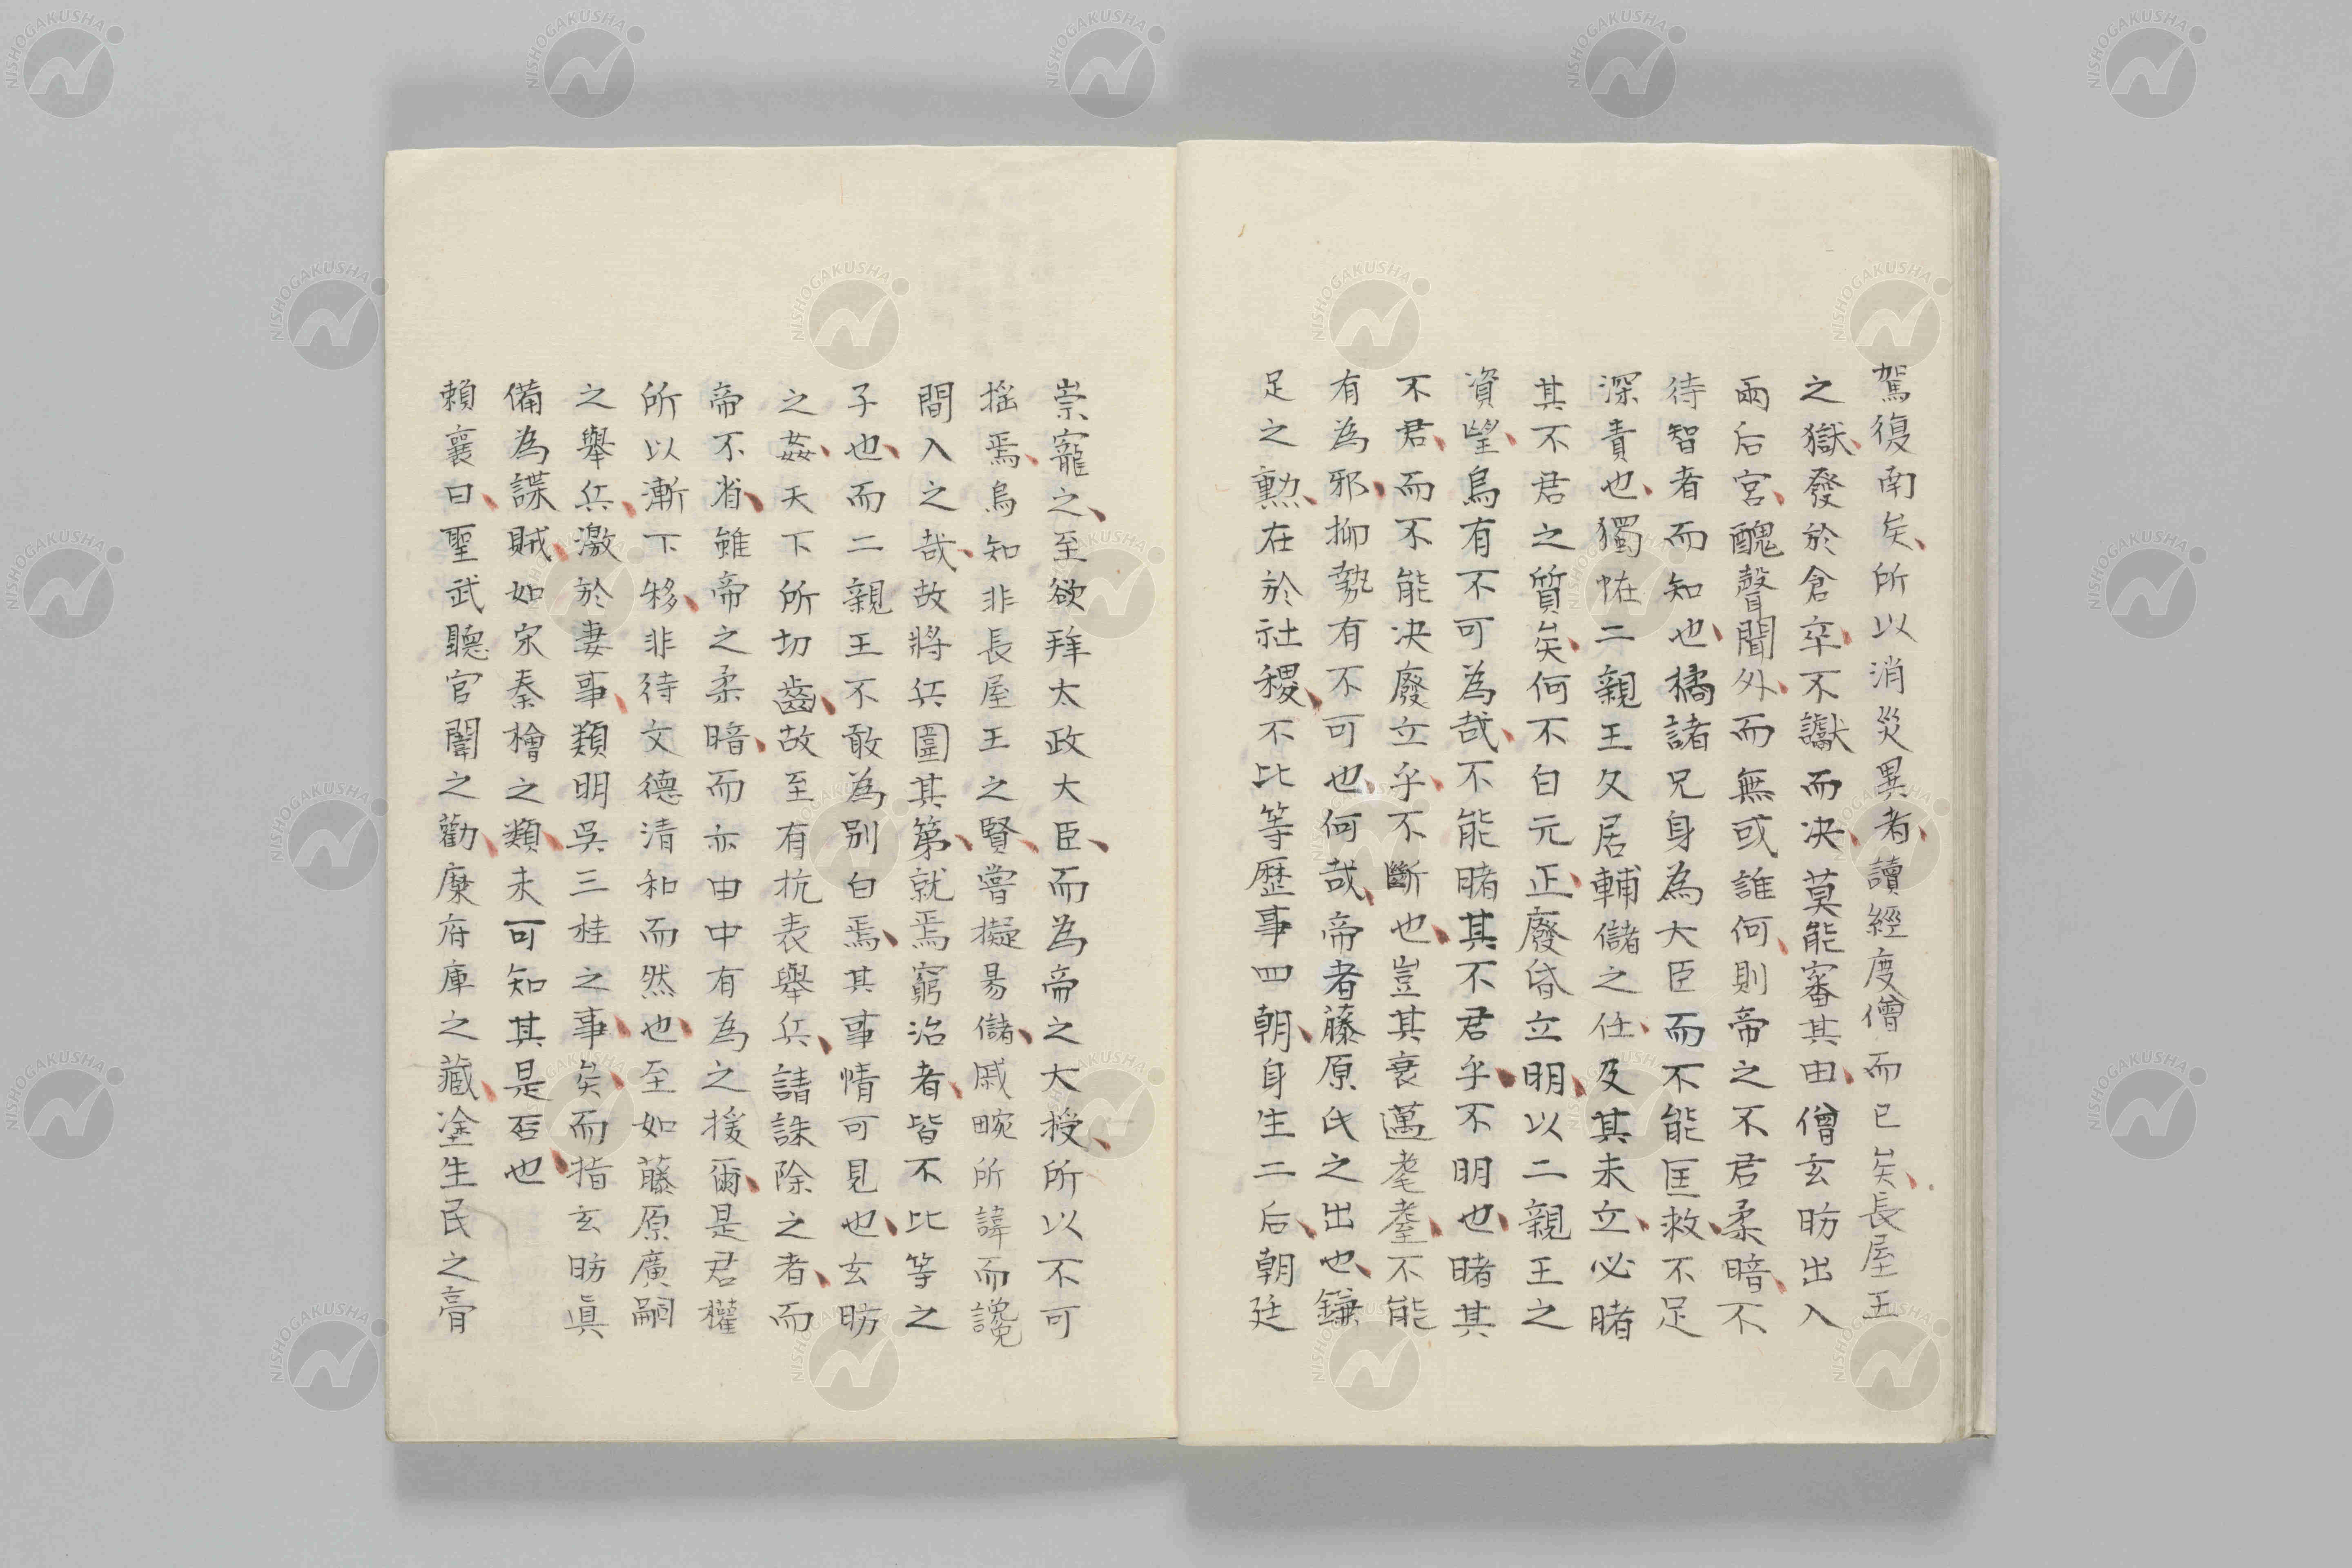 駕復南矣、所以消災異者、讀經度僧而已矣、長屋王
之獄、發於倉卒、不讞而决、莫能審其由、僧玄昉出入
兩后宮、醜聲聞外、而無或誰何、則帝之不君柔暗、不
待智者而知也、橘諸兄身為大臣而不能匡救、不足
深責也、獨恠二親王久居輔儲之任、及其未立、必睹
其不君之質矣、何不白元正、廢昏立明、以二親王之
資望、烏有不可為哉、不能睹其不君乎、不明也、睹其
不君、而不能决廢立乎、不斷也、豈其衰邁耄耋、不能
有為邪、抑勢有不可也、何哉、帝者藤原氏之出也、鎌
足之勲、在於社稷、不比等歷事四朝、身生二后、朝廷
崇寵之、至欲拜太政大臣、而為帝之大授、所以不可
搖焉、烏知非長屋王之賢、嘗擬易儲、戚畹所諱而讒
間入之哉、故將兵圍其第、就焉窮治者、皆不比等之
子也、而二親王不敢為別白焉、其事情可見也、玄昉
之姦、天下所切齒、故至有抗表舉兵、請誅除之者、而
帝不省、雖帝之柔暗、而亦由中有為之援爾、是君權
所以漸下移、非待文德清和而然也、至如藤原廣嗣
之舉兵、激於妻事、類明吳三桂之事矣、而指玄昉眞
備為諜賊、如宋秦檜之類、未可知其是否也
賴襄曰、聖武聽宮闈之勸、糜府庫之藏、塗生民之膏